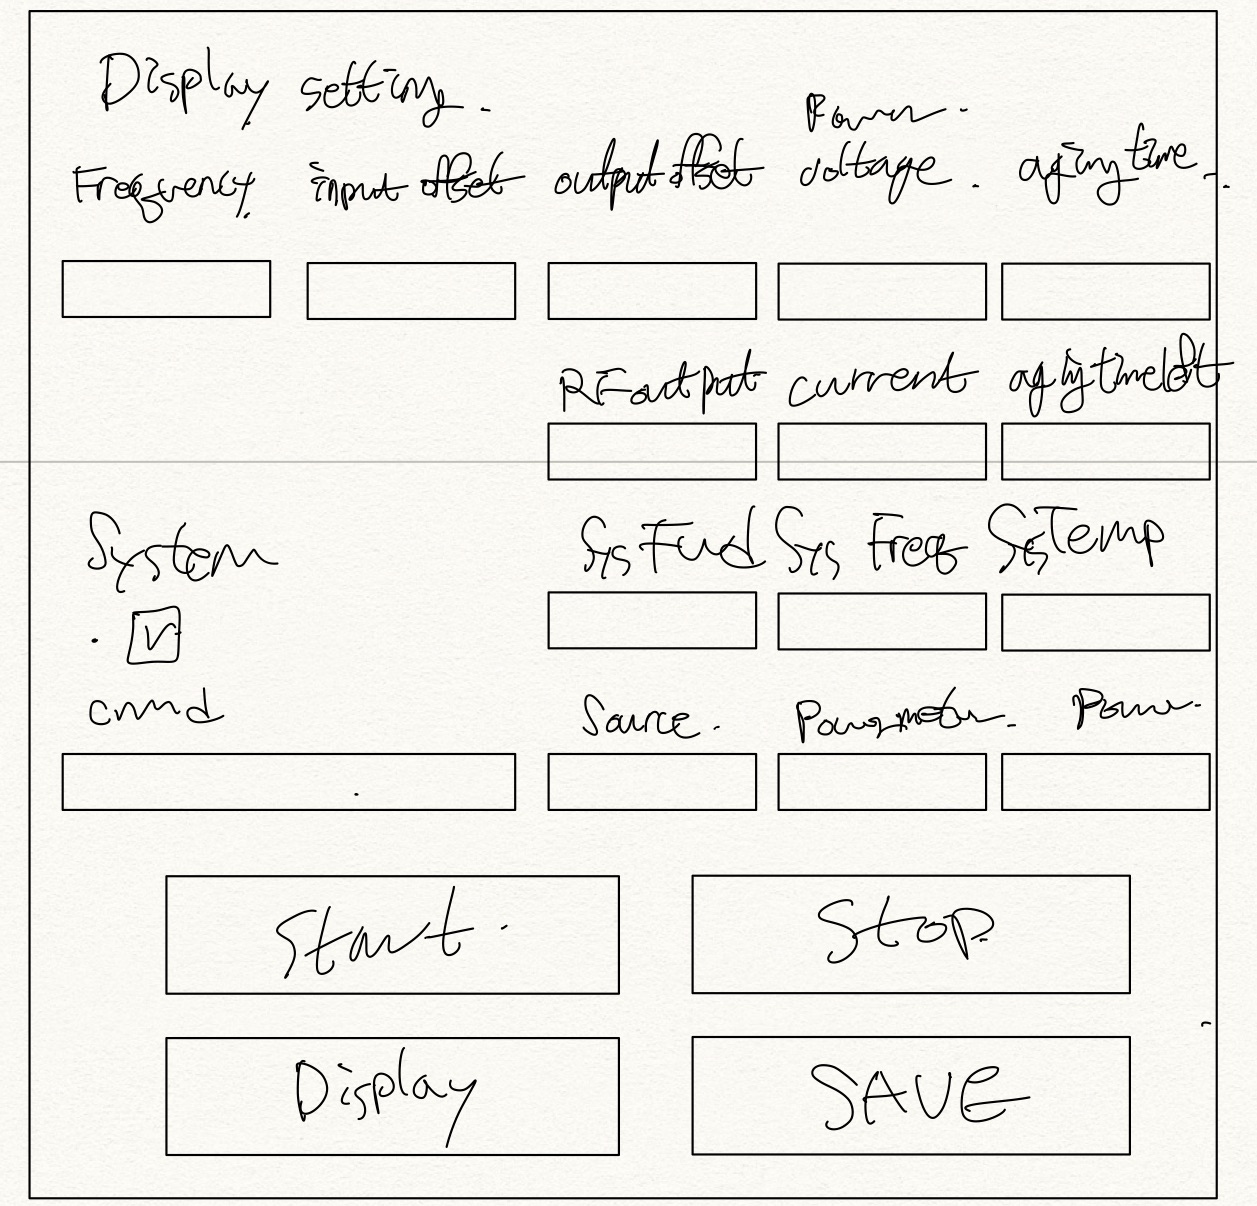 Display setting.
Power
Frequency input offset output offset voltage. aging time.
RF output current aging time left
System Sys Fwd Sys Freq Sys Temp
cmmd Source. Powermeter. Power.
Start. Stop
Display SAVE